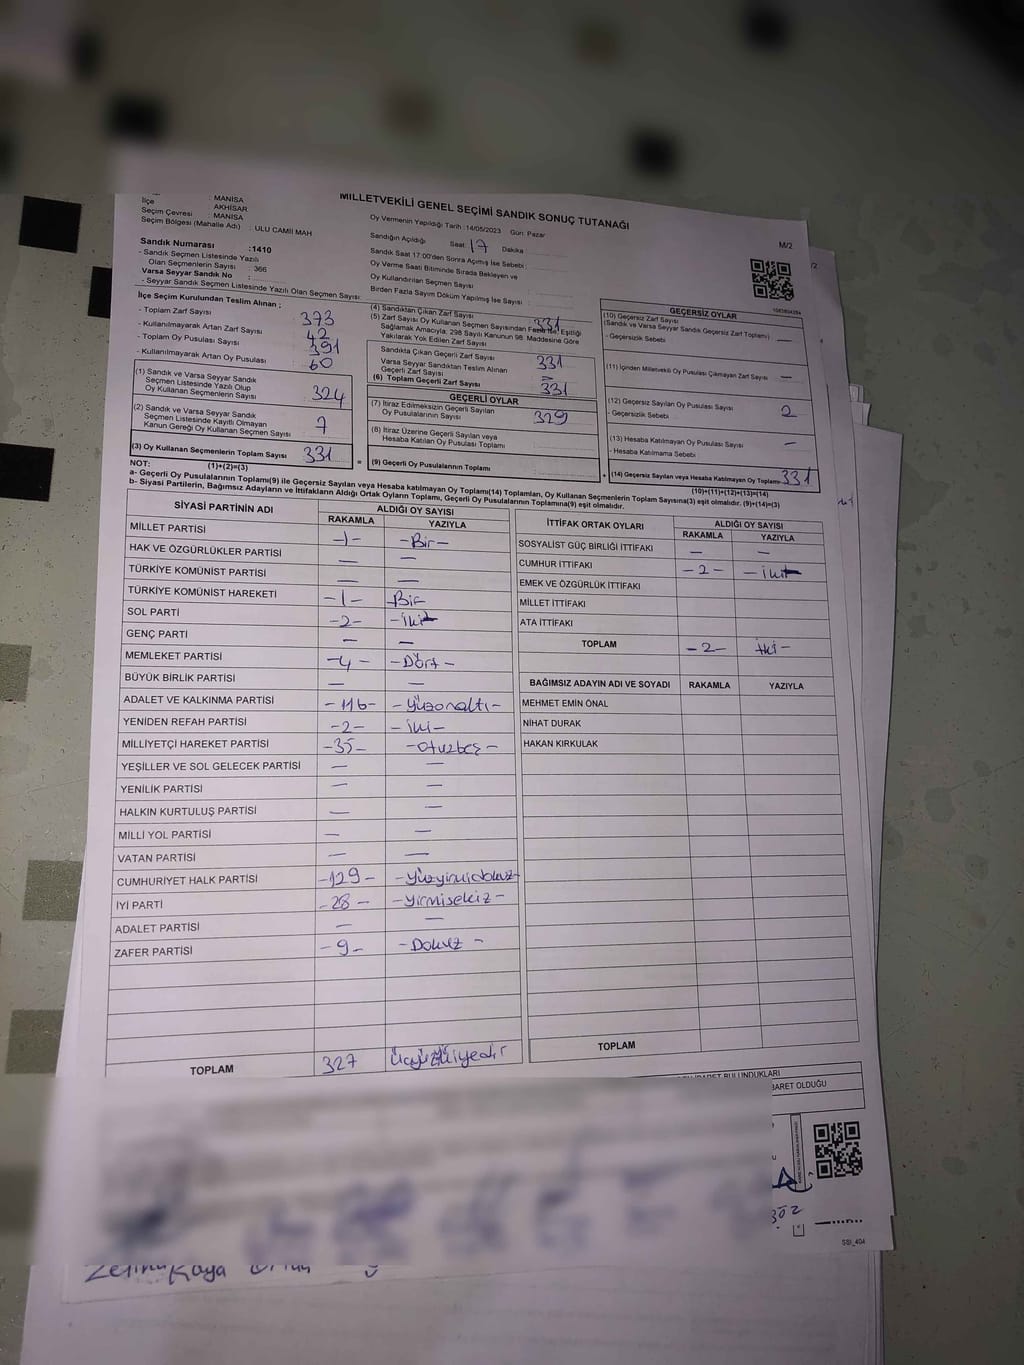 MİLLETVEKİLİ GENEL SEÇİMİ SANDIK SONUÇ TUTANAĞI
M/2
: MANİSA
İlçe : AKHİSAR
Seçim Çevresi : MANİSA
Seçim Bölgesi (Mahalle Adı) : ULU CAMİİ MAH
Sandık Numarası :1410
- Sandık Seçmen Listesinde Yazılı
Olan Seçmenlerin Sayısı : 366
Varsa Seyyar Sandık No
- Seyyar Sandık Seçmen Listesinde Yazılı Olan Seçmen Sayısı:
Oy Vermenin Yapıldığı Tarih :14/05/2023 Gün: Pazar
Sandığın Açıldığı Saat 17 Dakika
Sandık Saat 17:00'den Sonra Açımış İse Sebebi :
Oy Verme Saati Bitiminde Sırada Bekleyen ve
Oy Kullandırılan Seçmen Sayısı
Birden Fazla Sayım Döküm Yapılmış İse Sayısı :
İlçe Seçim Kurulundan Teslim Alınan ;
- Toplam Zarf Sayısı 373
- Kullanılmayarak Artan Zarf Sayısı 42
- Toplam Oy Pusulası Sayısı 391
- Kullanılmayarak Artan Oy Pusulası 60
(1) Sandık ve Varsa Seyyar Sandık
Seçmen Listesinde Yazılı Olup
Oy Kullanan Seçmenlerin Sayısı 324
(2) Sandık ve Varsa Seyyar Sandık
Seçmen Listesinde Kayıtlı Olmayan
Kanun Gereği Oy Kullanan Seçmen Sayısı 7
(3) Oy Kullanan Seçmenlerin Toplam Sayısı 331
(1)+(2)=(3)
(4) Sandıktan Çıkan Zarf Sayısı 331
(5) Zarf Sayısı Oy Kullanan Seçmen Sayısından Fazla İse, Eşitliği
Sağlamak Amacıyla; 298 Sayılı Kanunun 98. Maddesine Göre
Yakılarak Yok Edilen Zarf Sayısı
Sandıkta Çıkan Geçerli Zarf Sayısı 331
Varsa Seyyar Sandıktan Teslim Alınan
Geçerli Zarf Sayısı
(6) Toplam Geçerli Zarf Sayısı 331
GEÇERLİ OYLAR
(7) İtiraz Edilmeksizin Geçerli Sayılan
Oy Pusulalarının Sayısı 329
(8) İtiraz Üzerine Geçerli Sayılan veya
Hesaba Katılan Oy Pusulası Toplamı
(9) Geçerli Oy Pusulalarının Toplamı
GEÇERSİZ OYLAR
(10) Geçersiz Zarf Sayısı
(Sandık ve Varsa Seyyar Sandık Geçersiz Zarf Toplamı)
- Geçersizlik Sebebi
(11) İçinden Milletvekili Oy Pusulası Çıkmayan Zarf Sayısı —
(12) Geçersiz Sayılan Oy Pusulası Sayısı 2
- Geçersizlik Sebebi
(13) Hesaba Katılmayan Oy Pusulası Sayısı —
- Hesaba Katılmama Sebebi
(14) Geçersiz Sayılan veya Hesaba Katılmayan Oy Toplamı 331
(10)+(11)+(12)+(13)=(14)
NOT:
a- Geçerli Oy Pusulalarının Toplamı(9) ile Geçersiz Sayılan veya Hesaba katılmayan Oy Toplamı(14) Toplamları, Oy Kullanan Seçmenlerin Toplam Sayısına(3) eşit olmalıdır. (9)+(14)=(3)
b- Siyasi Partilerin, Bağımsız Adayların ve İttifakların Aldığı Ortak Oyların Toplamı, Geçerli Oy Pusulalarının Toplamına(9) eşit olmalıdır.
SİYASİ PARTİNİN ADI ALDIĞI OY SAYISI
RAKAMLA YAZIYLA
MİLLET PARTİSİ -1- -Bir-
HAK VE ÖZGÜRLÜKLER PARTİSİ — —
TÜRKİYE KOMÜNİST PARTİSİ — —
TÜRKİYE KOMÜNİST HAREKETİ -1- Bir
SOL PARTİ -2- -İki-
GENÇ PARTİ — —
MEMLEKET PARTİSİ -4- -Dört-
BÜYÜK BİRLİK PARTİSİ — —
ADALET VE KALKINMA PARTİSİ -116- -yüzonaltı-
YENİDEN REFAH PARTİSİ -2- -İki-
MİLLİYETÇİ HAREKET PARTİSİ -35- -otuzbeş-
YEŞİLLER VE SOL GELECEK PARTİSİ — —
YENİLİK PARTİSİ — —
HALKIN KURTULUŞ PARTİSİ — —
MİLLİ YOL PARTİSİ — —
VATAN PARTİSİ — —
CUMHURİYET HALK PARTİSİ -129- -yüzyirmidokuz-
İYİ PARTİ -28- -yirmisekiz-
ADALET PARTİSİ — —
ZAFER PARTİSİ -9- -Dokuz-
TOPLAM 327
İTTİFAK ORTAK OYLARI ALDIĞI OY SAYISI
RAKAMLA YAZIYLA
SOSYALİST GÜÇ BİRLİĞİ İTTİFAKI — —
CUMHUR İTTİFAKI -2- -İki-
EMEK VE ÖZGÜRLÜK İTTİFAKI
MİLLET İTTİFAKI
ATA İTTİFAKI
TOPLAM -2- İki-
BAĞIMSIZ ADAYIN ADI VE SOYADI RAKAMLA YAZIYLA
MEHMET EMİN ÖNAL
NİHAT DURAK
HAKAN KIRKULAK
TOPLAM
BULUNDUKLARI
BARET OLDUĞU
302
SSI_404
Kaya